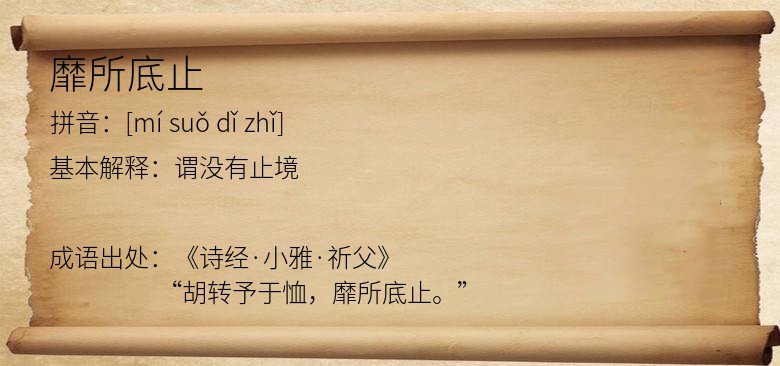 靡所底止
拼音：[mí suǒ dǐ zhǐ]
基本解释：谓没有止境
成语出处：《诗经·小雅·祈父》
“胡转予于恤，靡所底止。”